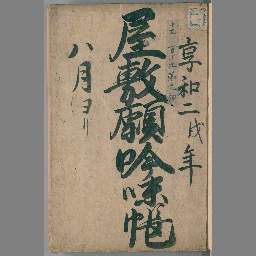 享和二戌年
屋敷願吟味帳
八月ヨリ